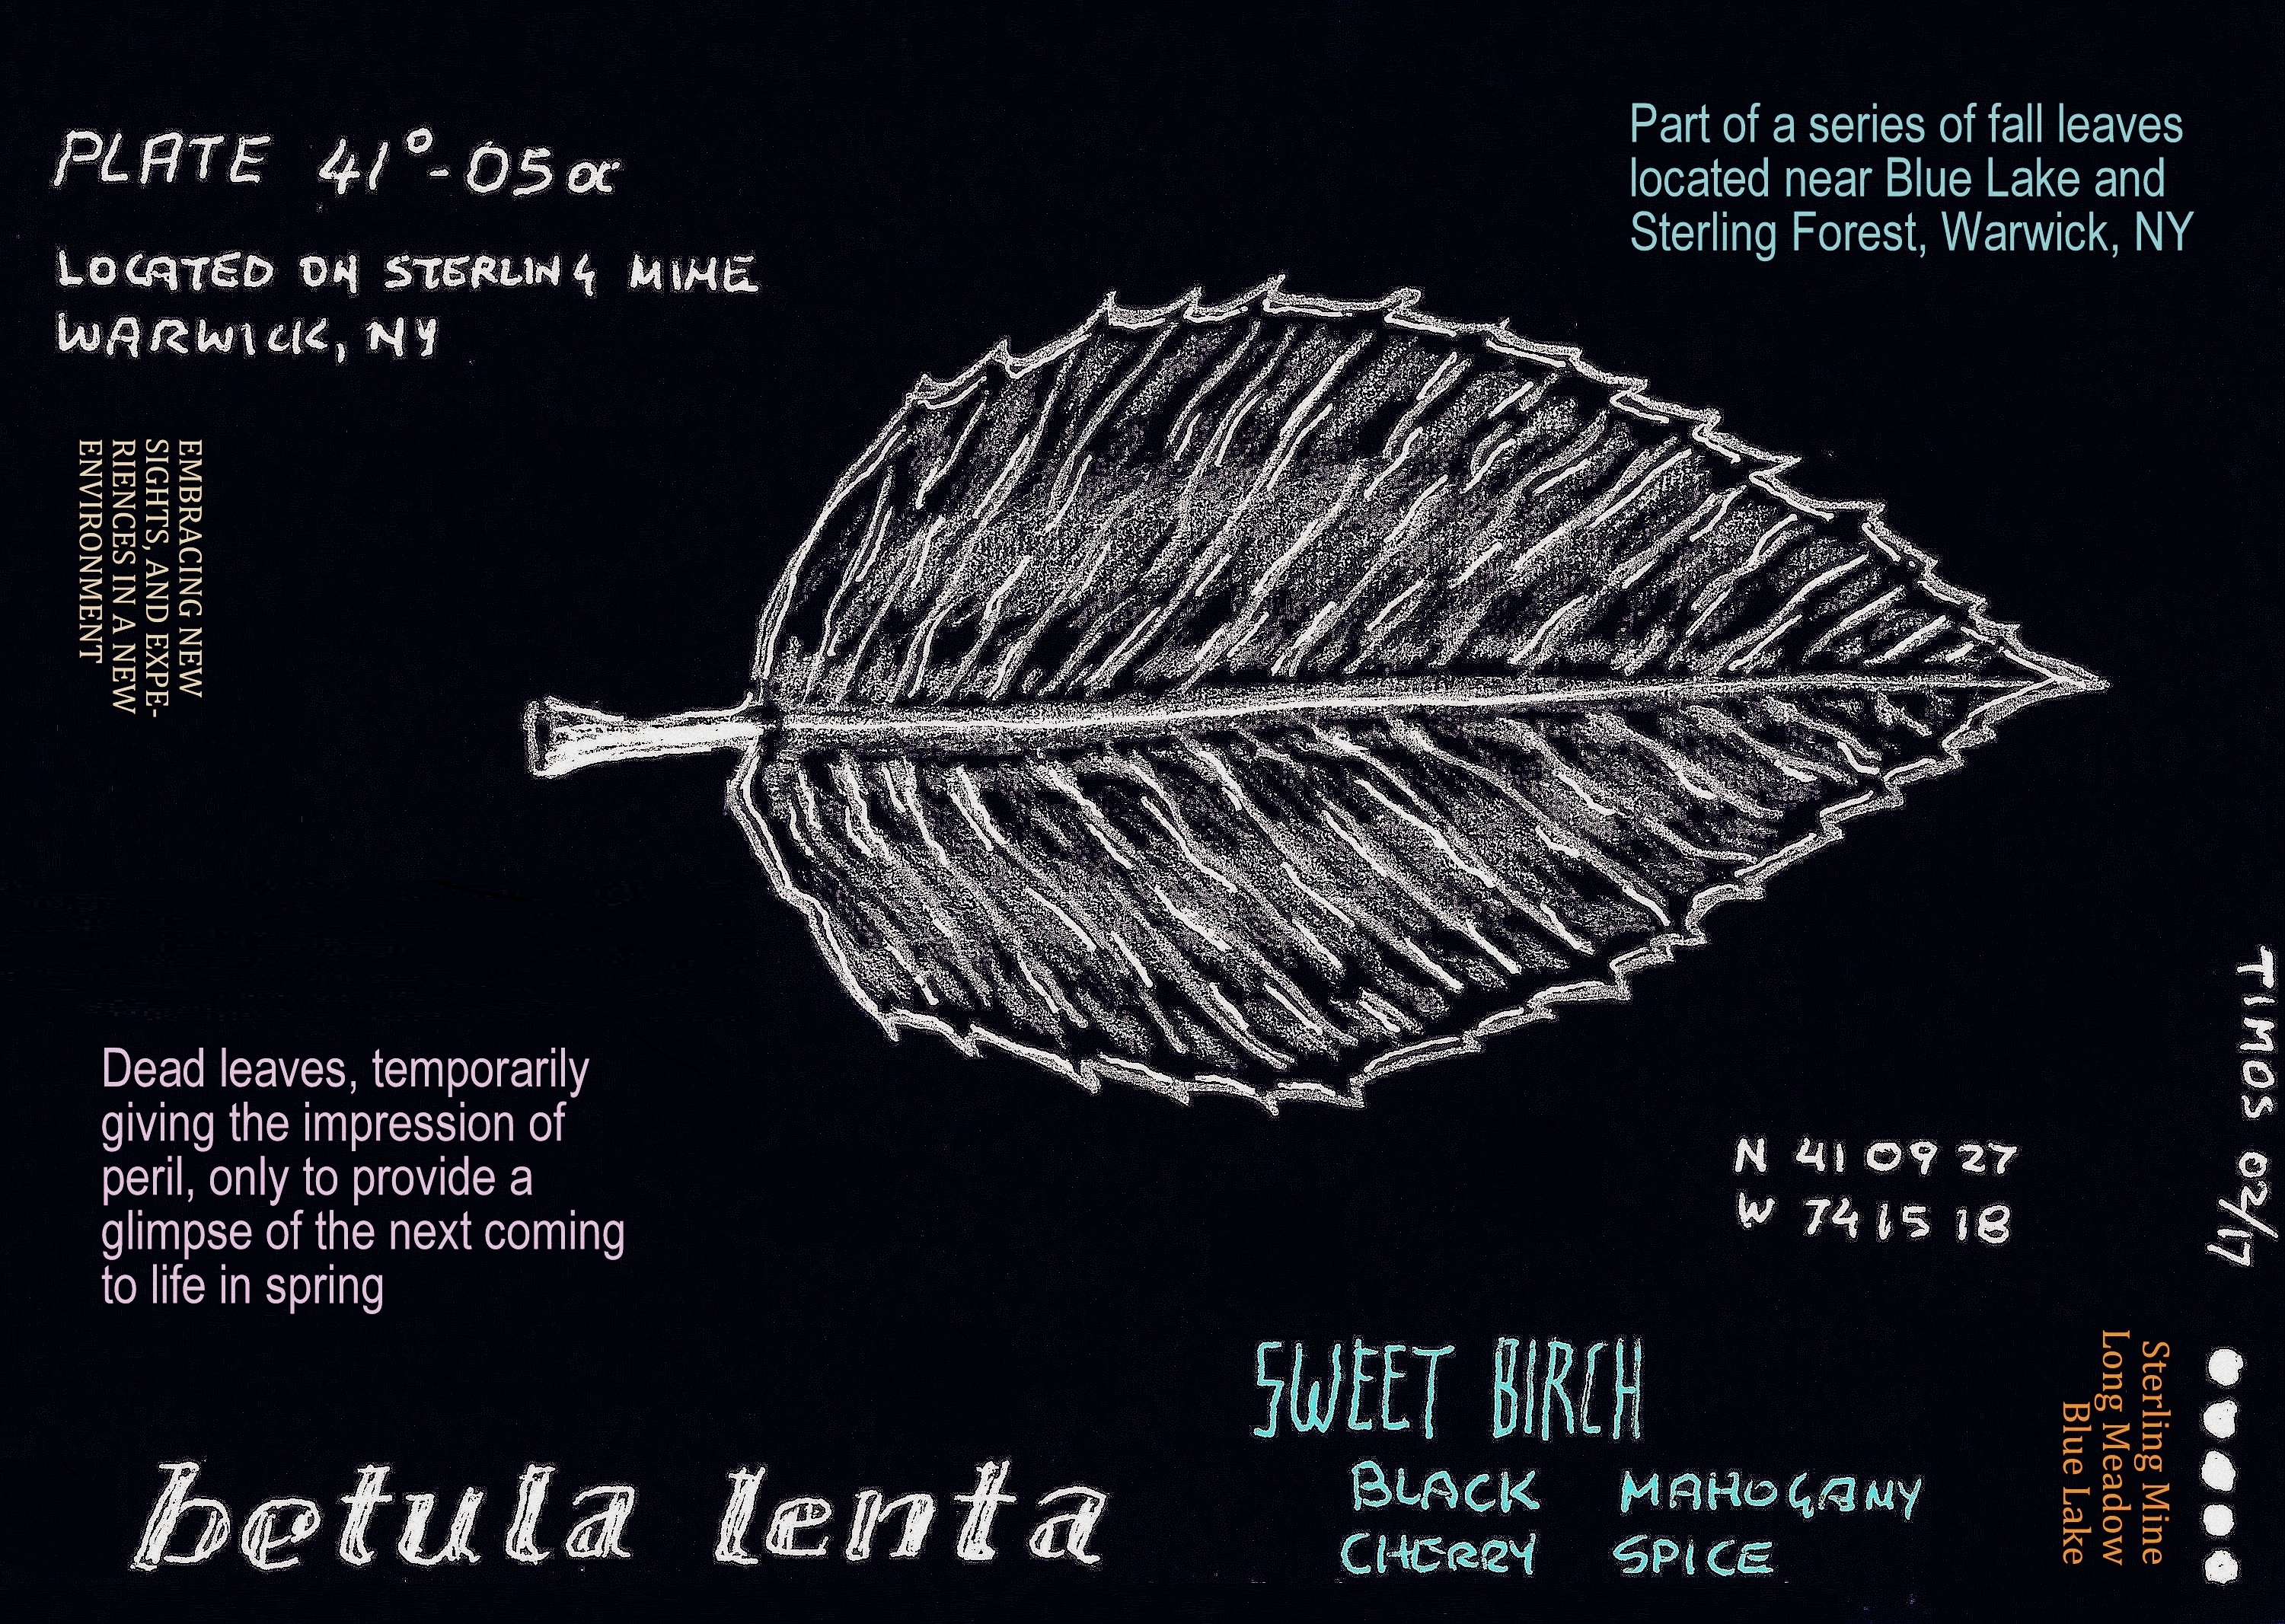 PLATE 41°-05α
LOCATED ON STERLING MINE
WARWICK, NY
Part of a series of fall leaves
located near Blue Lake and
Sterling Forest, Warwick, NY
EMBRACING NEW
SIGHTS, AND EXPE-
RIENCES IN A NEW
ENVIRONMENT
Dead leaves, temporarily
giving the impression of
peril, only to provide a
glimpse of the next coming
to life in spring
N 41 09 27
W 74 15 18
TIMOS 02/17
SWEET BIRCH
BLACK MAHOGANY
CHERRY SPICE
betula lenta
Sterling Mine
Long Meadow
Blue Lake